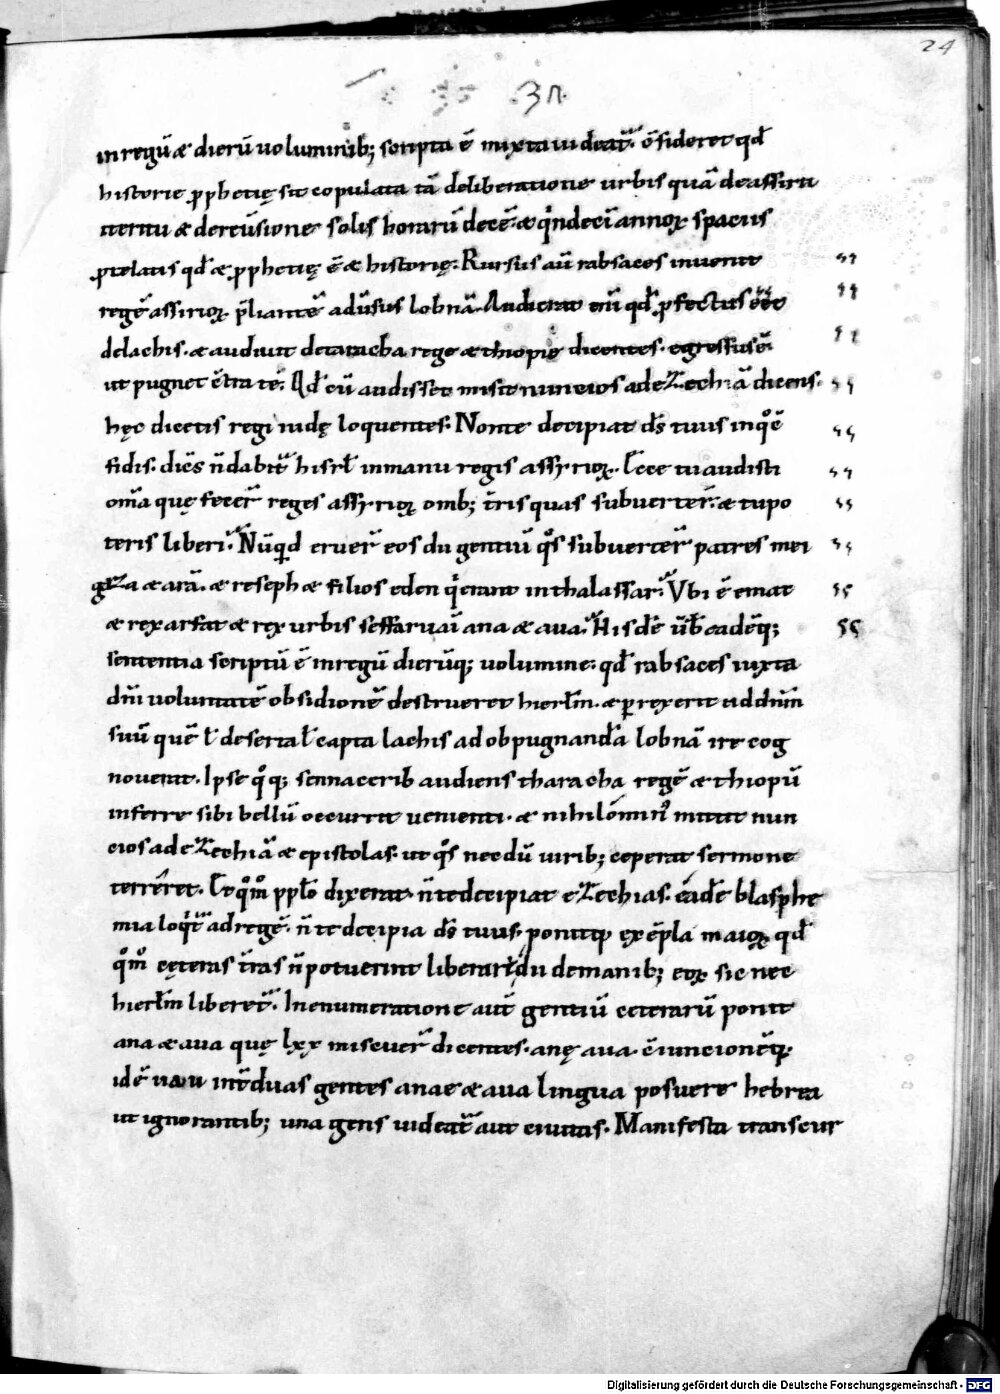 24
in regũ & dierũ voluminib; scripta ẽ iuxta uideat᷑. c̃sideret qđ
historie ꝓphetię sit copulata tã deliberatione urbis quã de assirii
iteritu & dereũsione solis horarũ decẽ. & q̇ndecĩ annoꝝ spaciis
ꝓtelatis qđ & ꝓphetię ẽ & historię: Rursus aũ rabsaces inuenit
regẽ assirioꝝ p̃liantẽ adũsus lobnã. Audierat eni qđ ꝓfectus eẽt
delachis. & audiuit detaracha rege & thiopię dicentes. egressus ẽ
ut pugnet c̃tra te. Qđ cũ audisset misit nuncios ad eZechiã dicens.
hęc dicetis regi iudę loquentes: Non te decipiat ds̃ tuus inq̊ c̃
fidis. dic̃s ñ dabit᷑ hisrl̃ in manu regis assyrioꝝ. Ecce tu audisti
om̃a quę fecer̃ reges assyrioꝝ omb; t̃ris quas subuerter̃. & tu po
teris liberi᷑. Nũqđ eruer̃ eos dii gentiũ q̊s subuerter̃ patres mei
goZa & arã. & reseph & filios eden q̇ erant in thalassar᷑. Vbi ẽ emat
& rex arfat & rex urbis seffaruaĩ ana & aua. His dẽ ũb̃ eadẽq;
sententia scriptũ ẽ in regũ dierũq; volumine: qđ rabsaces iuxta
dñi voluntatẽ obsidionẽ destrueret hierl̃m. & ꝑrexerit ad dñm
suũ quẽ l̃ deseria l̃ capta lachis ad obpugnandã lobnã ire cog
nouerat. Ipse q̊q; sennacerib audiens tharacha regẽ & thiopũ
inferre sibi bellũ occurrit uenienti. & nihilõmin᷒ mittit nun
cios ad eZechiã & epistolas. ut q̊s necdũ uirib; ceperat sermone
terreret. Et q̊m̊ pp̃lo dixerat. ñ te decipiat eZechias. eadẽ blasphe
mia loq̇t᷑ ad regẽ. ñ te decipia ds̃ tuus. ponitq; exẽpla maioꝝ qđ
q̊m̊ cęteras t̃ras ñ potuerint liberare dii de manib; eoꝝ sic nec
hierl̃m liberet᷑. In enumeratione aut̃ gentiũ ceterarũ ponit
ana & aua quę lxx miscuer̃ dicentes. anę aua. c̃iuncionẽq;
idẽ uau int̃ duas gentes anae & aua lingua posuere hebrea
ut ignorantib; una gens uideat᷑ aut ciuitas. Manifesta transcur
Digitalisierung gefördert durch die Deutsche Forschungsgemeinschaft - DFG